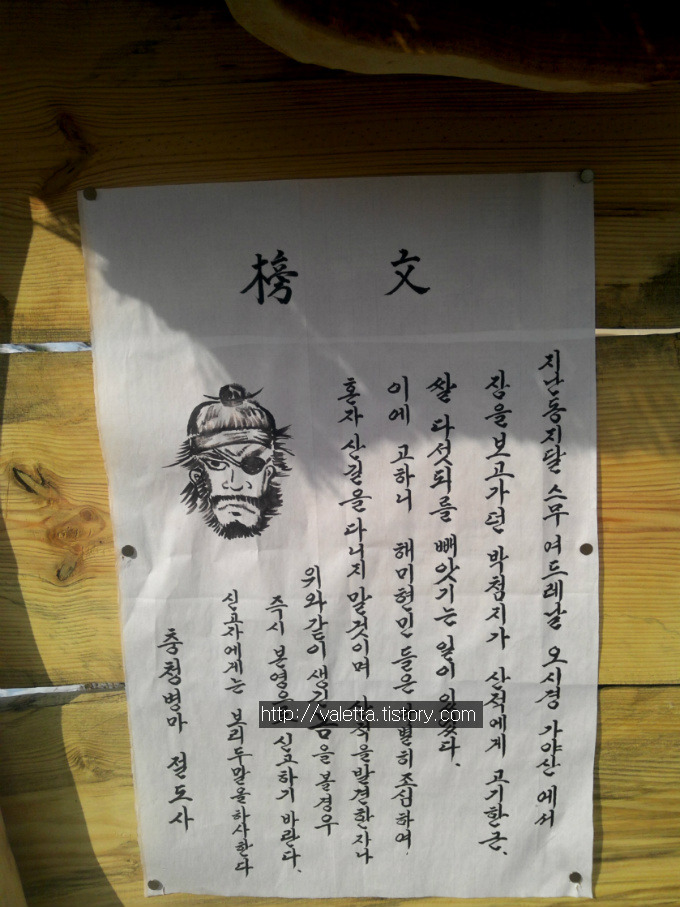 榜 文
지난동지달 스무여드레날 오시경 가야산에서
장을보고가던 박첨지가 산적에게 고기한근,
쌀 다섯되를 빼앗기는 일이 있었다.
이에 고하니 해미현민들은 별히조심하여,
혼자 산길을 다니지말것이며 산적을발견한자나
위와같이 생긴 놈을 볼경우
즉시 본영으로 신고하기 바란다.
신고자에게는 보리두말을하사한다
충청병마 절도사
http://valetta.tistory.com